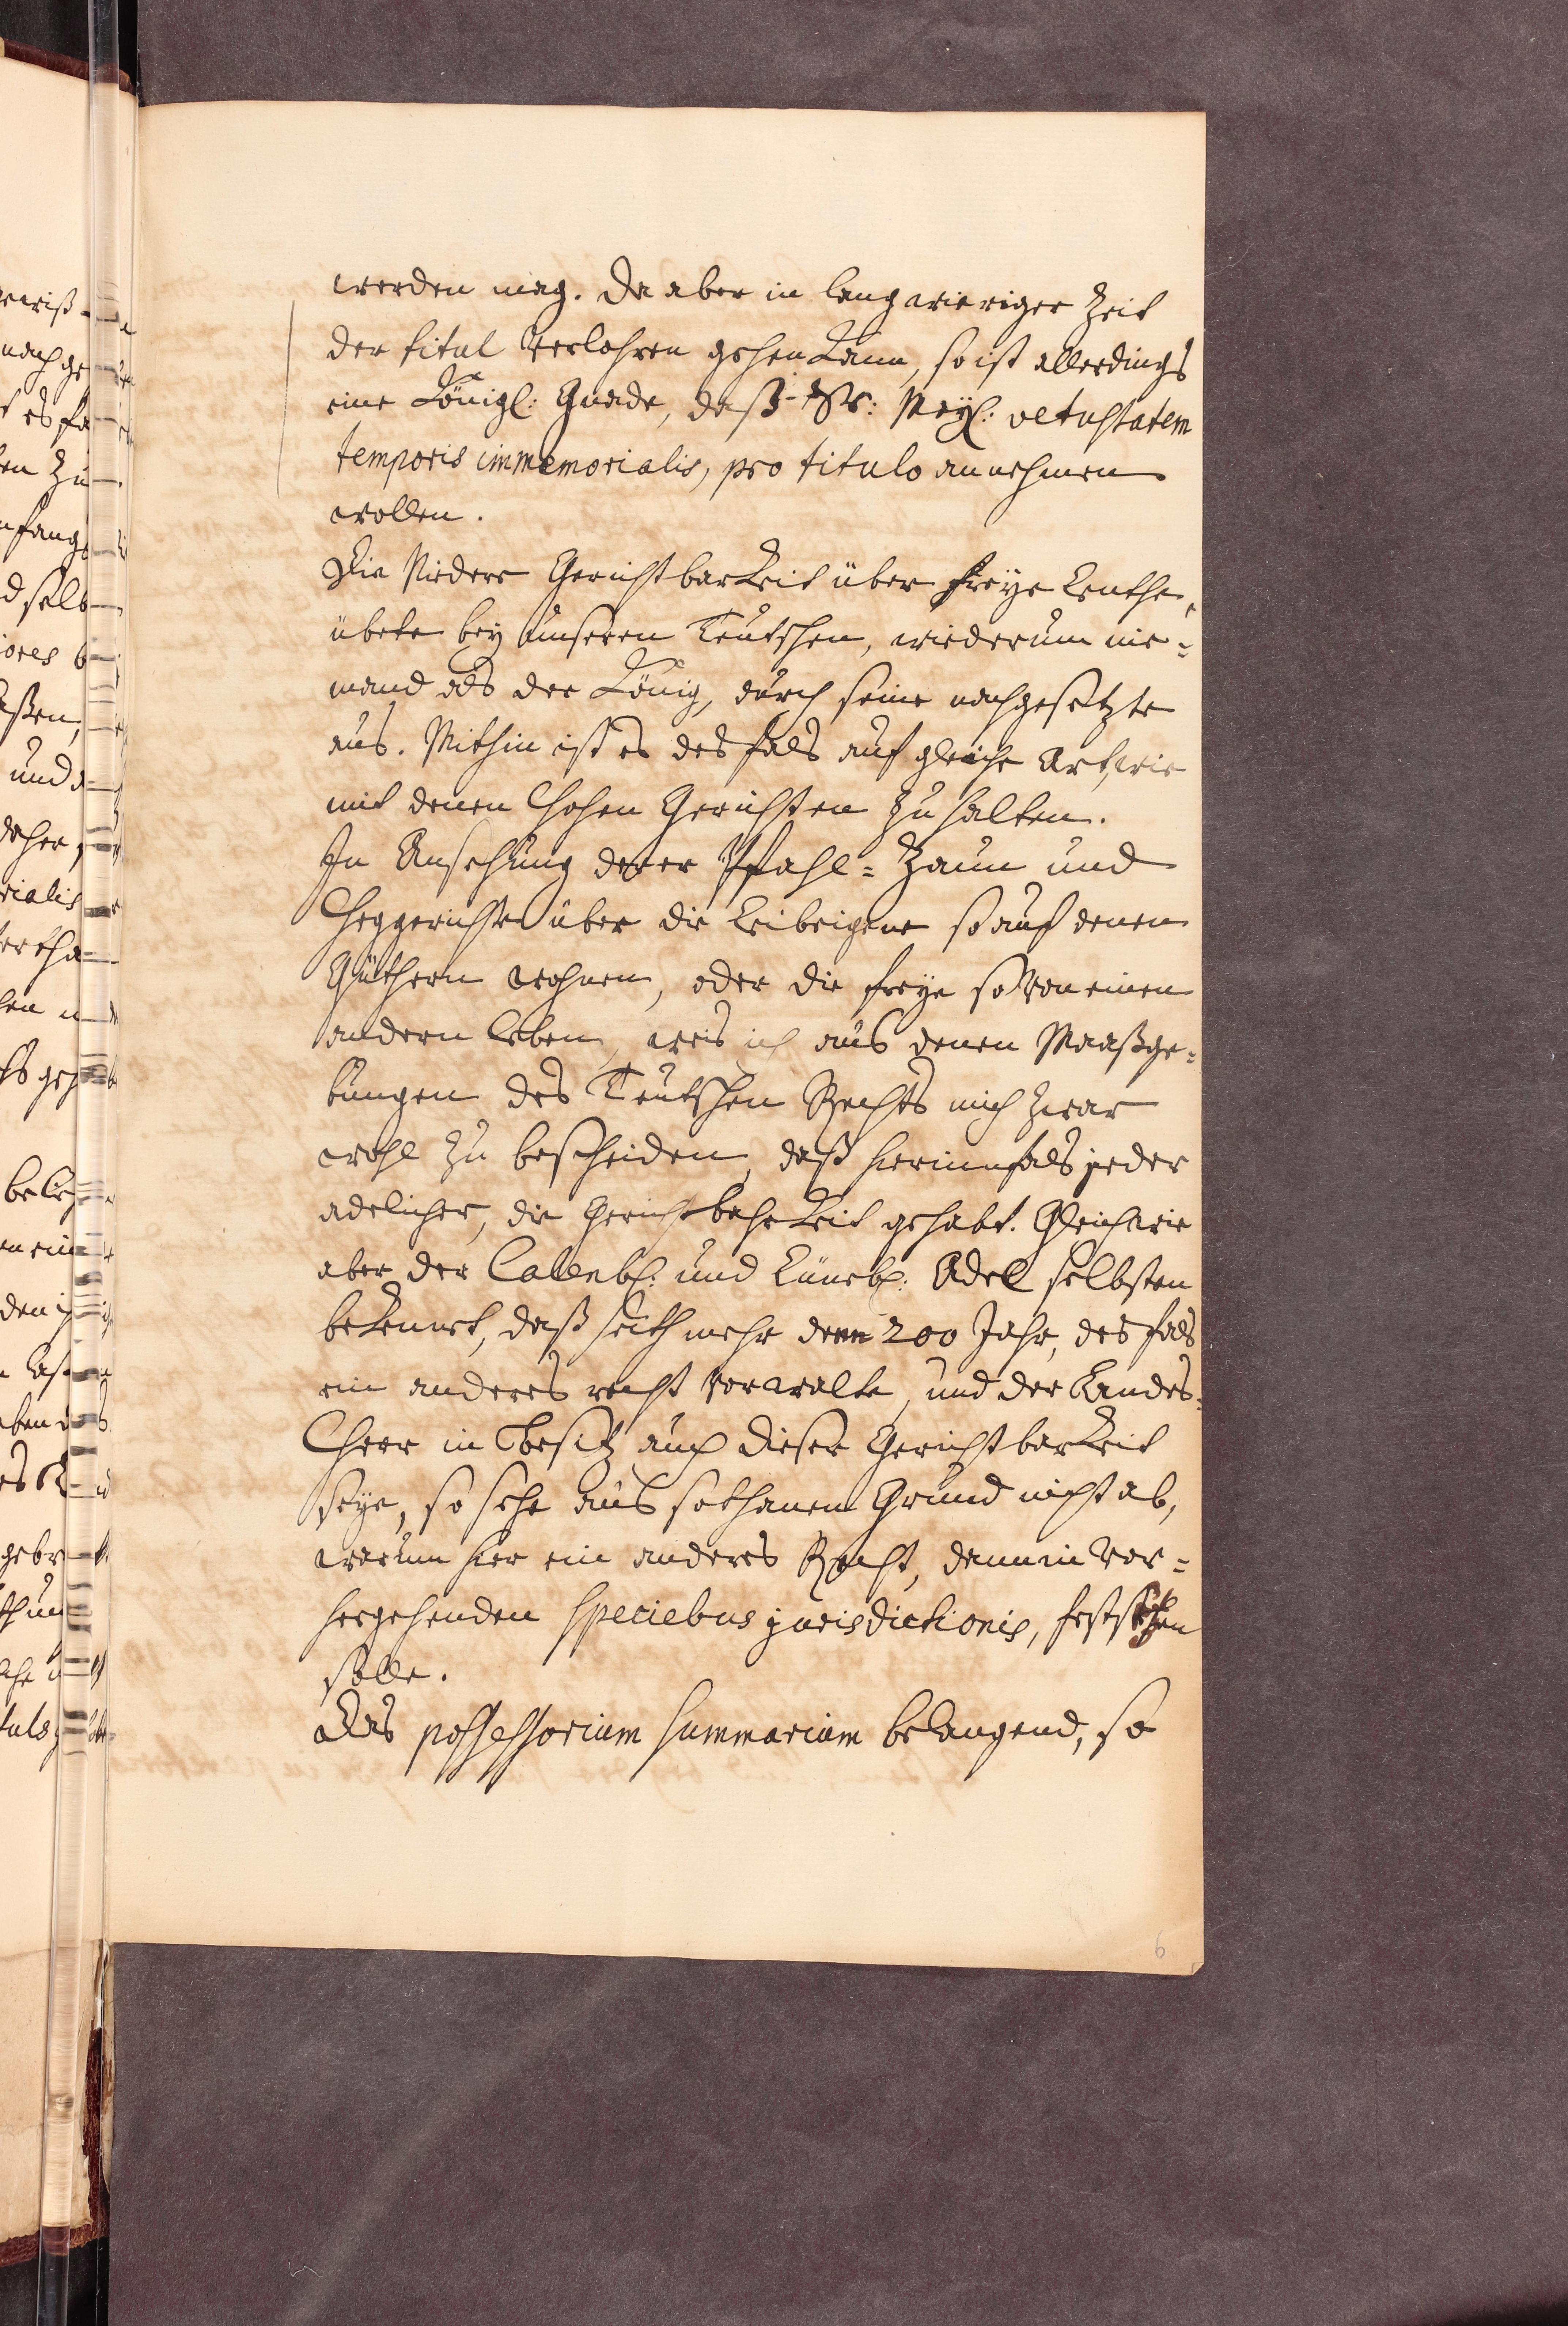 werden mag. Da aber in langwieriger Zeit
der titul verlohren gehen kann, so ist allerdings
eine Königl: Gnade, daß Er: May: vetustatem
temporis immemorialis, pro titulo annehmen
wollen.
Die Niedere Gerichtbarkeit über freye Leuthe,
übete bey unseren Teutschen, wiederum nie=
mand als der König, durch seine nachgesetzte
aus. Mithin ist es desfals auf gleiche Art, wie
mit denen Hohen Gerichten zu halten.
In Ansehung derer Pfahl= Zaun und
Heggerichte über die Leibeigene so auf denen
Güthern wohnen, oder die freye so von einen
andern leben, weis ich aus denen Maaßge=
bungen des Teutschen Rechts mich zwar
wohl zu bescheiden, daß hierinnfals jeder
adelicher, die Gerichtbahrkeit gehabt. Gleichwie
aber der Callenb: und Lüneb: Adel selbsten
bekennet, daß seith mehr denn 200 Jahr, desfals
ein anderes recht vorwalte, und der Landes=
Herr in Besitz auch dieser Gerichtbarkeit
seye, so sehe aus sothanen Grund nicht ab,
warum hier ein anderes Recht, dann in vor=
hergehenden speciebus jurisdictionis, festsetzen
solle.
Das possessorium summarium belangend, so
6